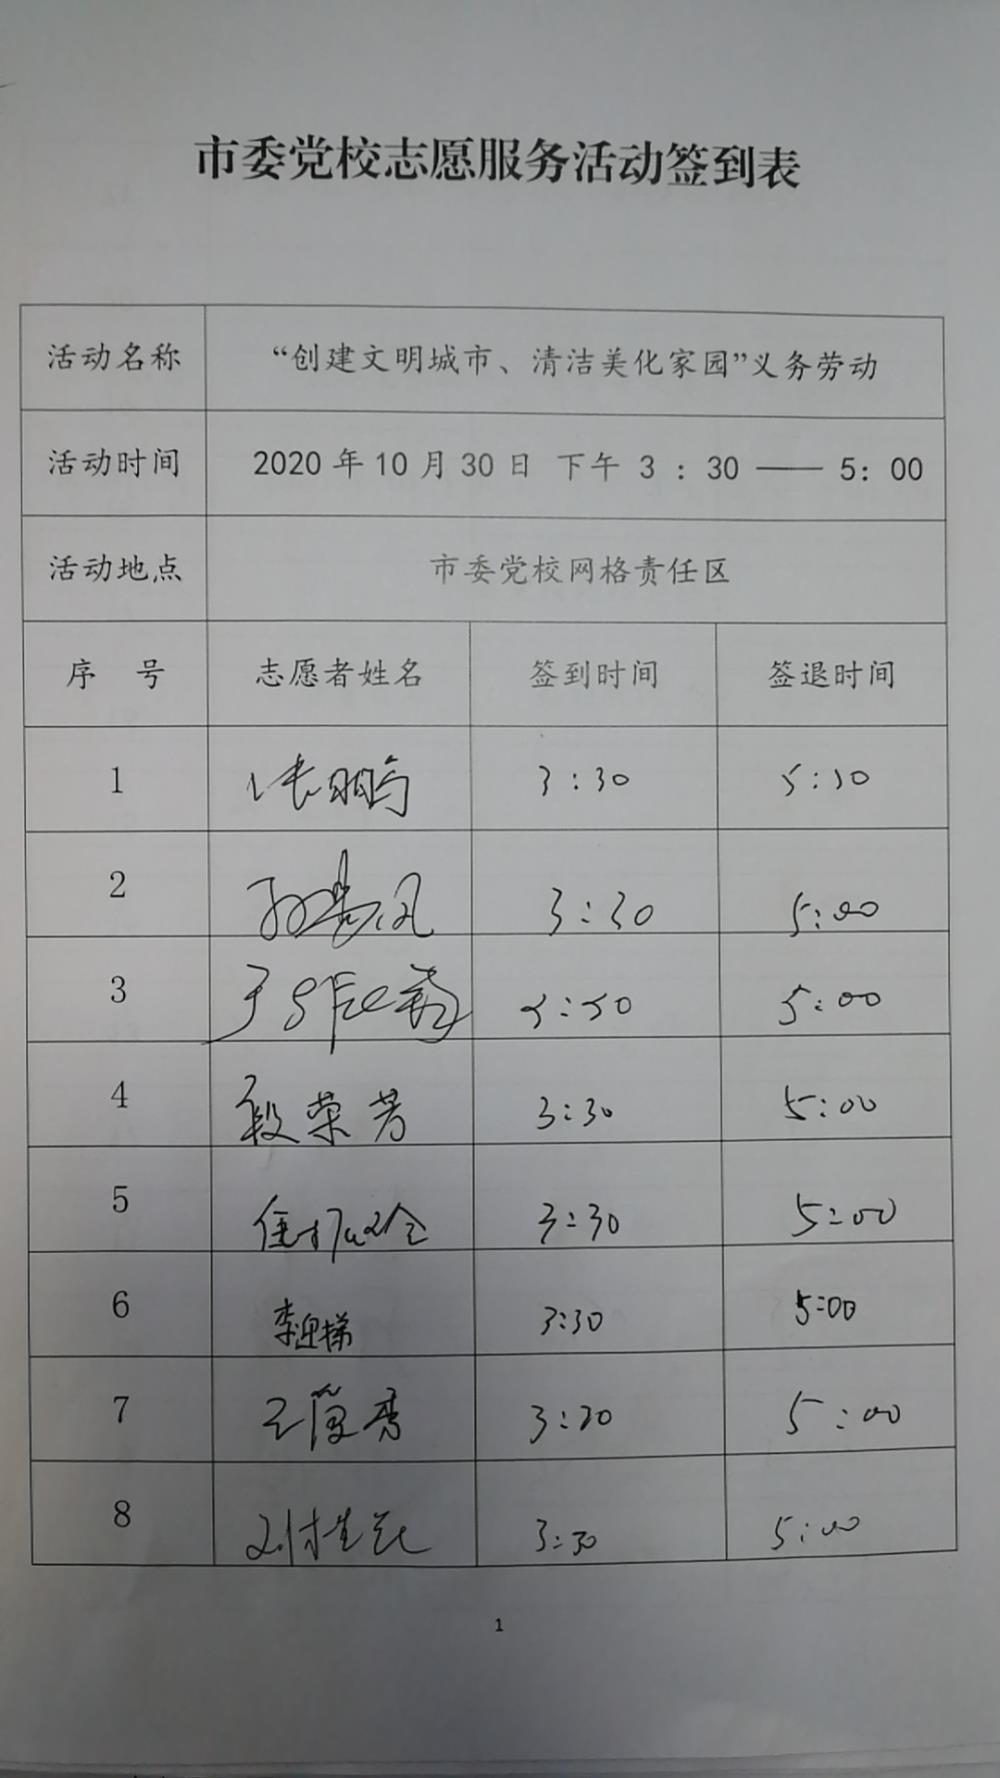 市委党校志愿服务活动签到表
活动名称 “创建文明城市、清洁美化家园”义务劳动
活动时间 2020年10月30日 下午 3 : 30 —— 5: 00
活动地点 市委党校网格责任区
序 号 志愿者姓名 签到时间 签退时间
1 张鹏 3:30
2 3:30 5:00
3 5:00
4 段荣芳 3:30 5:00
5 3:30 5:00
6 李迎梯 3:30 5:00
7 3:30 5:00
8 3:30 5:00
1